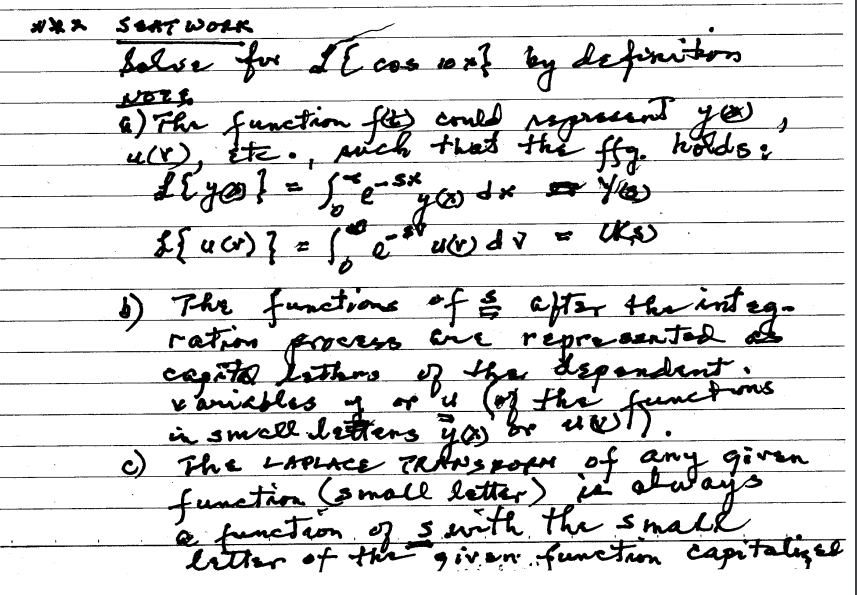 *** SEATWORK
Solve for ℒ{cos 10x} by definition
NOTE
a) The function f(t) could represent y(x),
u(v), etc., such that the ffg. holds:
ℒ{y(x)} = ∫₀^∞ e^{-sx} y(x) dx = Y(s)
ℒ{u(v)} = ∫₀^∞ e^{-sv} u(v) dv = U(s)
b) The functions of s after the integ-
ration process are represented as
capital letters of the dependent
variables y or u (of the functions
in small letters y(x) or u(v)).
c) The LAPLACE TRANSFORM of any given
function (small letter) is always
a function of s with the small
letter of the given function capitalized